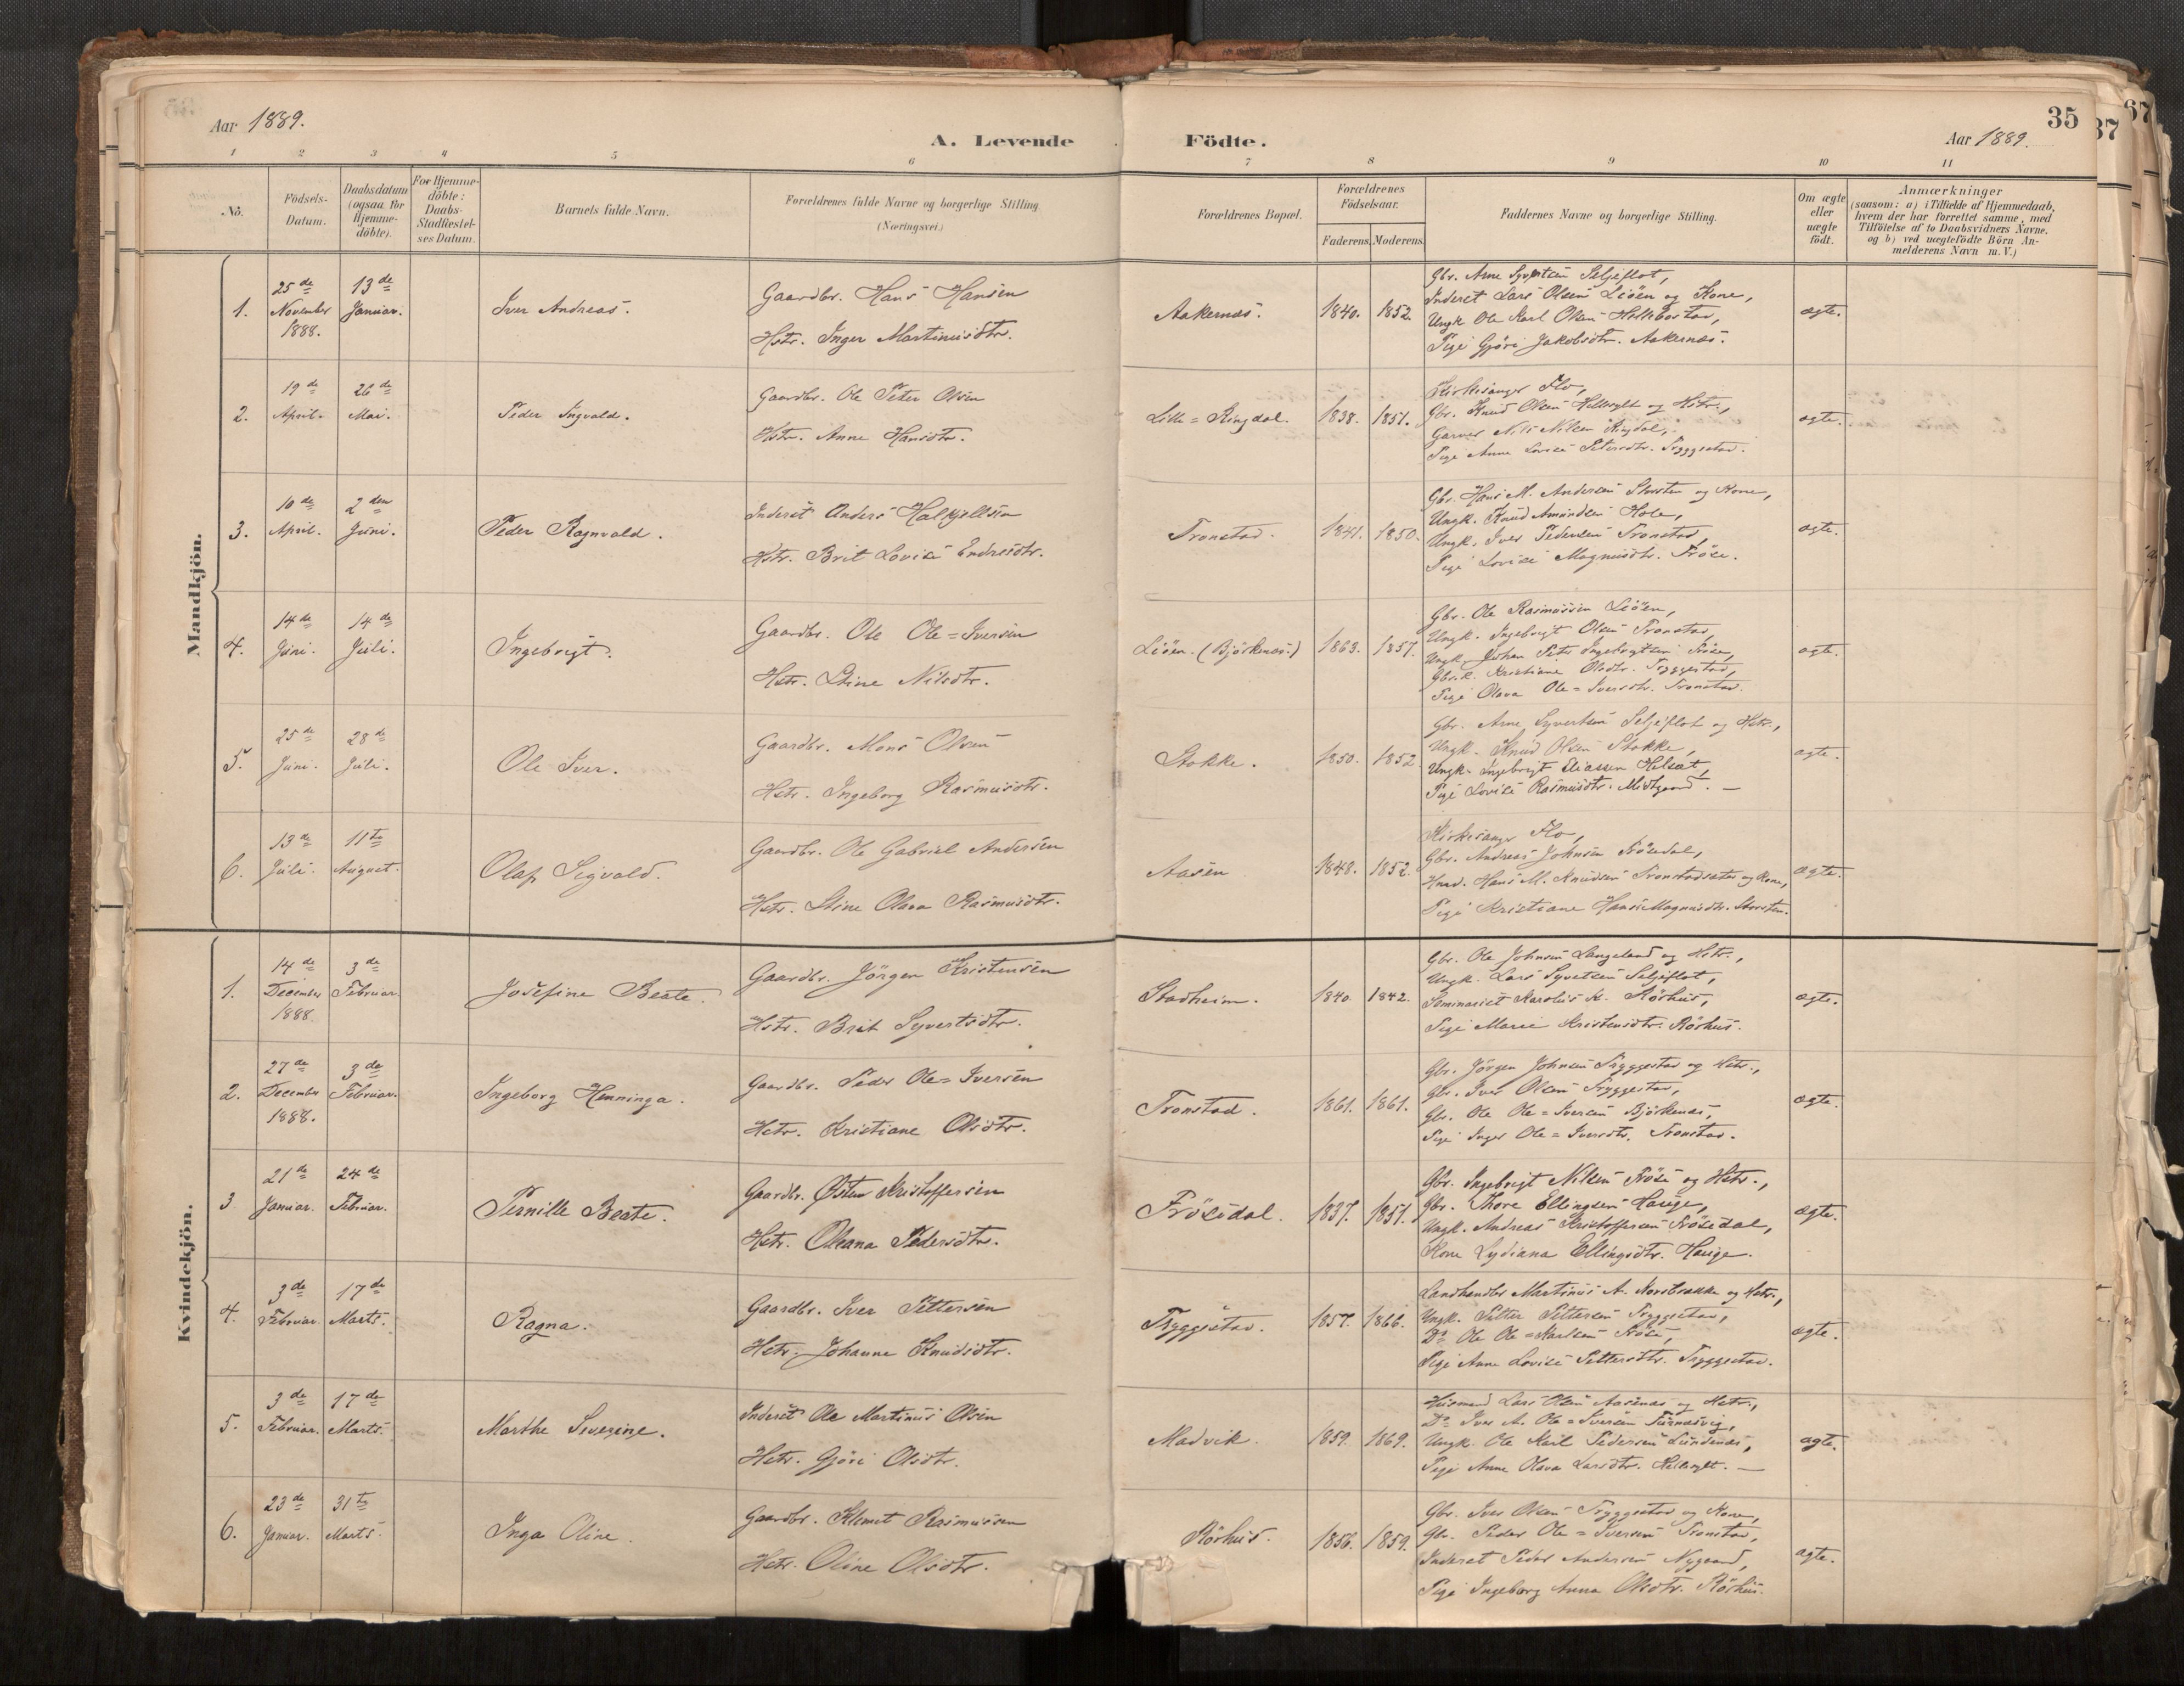 Aar 1889.
A. Levende Födte.
35
Aar 1889.
1 2 3 4 5 6 7 8 9 10 11
No.
Födsels-Datum.
Daabsdatum (ogsaa for Hjemme-döbte).
For Hjemme-döbte: Daabs-Stadfæstel-ses Datum.
Barnets fulde Navn.
Forældrenes fulde Navne og borgerlige Stilling.
(Næringsvei.)
Forældrenes Bopæl.
Forældrenes Födselsaar.
Faderens. Moderens.
Faddernes Navne og borgerlige Stilling.
Om ægte eller uægte födt.
Anmærkninger
(saasom: a) i Tilfælde af Hjemmedaab,
hvem der har forrettet samme, med
Tilföielse af to Daabsvidners Navne,
og b) ved uægtefödte Börn An-
melderens Navn m. V.)
Mandkjön.
1. 25de November 1888. 13de Januar. Iver Andreas.
Gaardbr. Hans Hansen
Hstr. Inger Martinusdtr.
Aakernæs. 1840. 1852.
Gbr. Arne Syvertsen Seljeflot,
Inderst Lars Olsen Liöen og Kone,
Ungk. Ole Karl Olsen Hellebostad,
Pige Gjöri Jakobsdtr. Aakernæs.
ægte.
2. 19de April. 26de Mai. Peder Ingvald.
Gaardbr. Ole Peter Olsen
Hstr. Anne Hansdtr.
Lille=Ringdal. 1838. 1851.
Kirkesanger Flo,
Gbr. Knud Olsen Hellesylt og Hstr.,
Garver Nils Nilsen Ringdal,
Pige Anne Lovise Petersdtr. Tryggestad.
ægte.
3. 10de April. 2den Juni. Peder Ragnvald.
Inderst Anders Halkjellsen
Hstr. Brit Lovise Endresdtr.
Tronstad. 1841. 1850.
Gbr. Hans M. Andersen Storsten og Kone,
Ungk. Knud Amundsen Hole,
Ungk. Iver Pedersen Tronstad,
Pige Lovise Magnusdtr. Fröse.
ægte.
4. 14de Juni. 14de Juli. Ingebrigt.
Gaardbr. Ole Ole=Iversen
Hstr. Stine Nilsdtr.
Liöen. (Björkenæs.) 1863. 1857.
Gbr. Ole Rasmussen Liöen,
Ungk. Ingebrigt Olsen Tronstad,
Ungk. Johan Peter Ingebrigtsen Fröse,
Gbr.k. Kristiane Olsdtr. Tryggestad,
Pige Olava Ole=Iversdtr. Tronstad.
ægte.
5. 25de Juni. 28de Juli. Ole Iver.
Gaardbr. Mons Olsen
Hstr. Ingeborg Rasmusdtr.
Stokke. 1850. 1852
Gbr. Arne Syvertsen Seljeflot og Hstr.,
Ungk. Knud Olsen Stokke,
Ungk. Ingebrigt Eliassen Helsæt,
Pige Lovise Rasmusdtr. Midtgaard.
ægte.
6. 13de Juli. 11te August. Olaf Sigvald.
Gaardbr. Ole Gabriel Andersen
Hstr. Stine Olava Rasmusdtr.
Aasen 1848. 1852.
Kirkesanger Flo,
Gbr. Andreas Johnsen Frösedal,
Husd. Hans M. Knudsen Tronstadsæter og Kone,
Pige Kristiane Hans=Magnusdtr. Storsten.
ægte.
Kvindekjön.
1. 14de December 1888. 3de Februar. Josefine Beate.
Gaardbr. Jörgen Kristensen
Hstr. Brit Syvertsdtr.
Stadheim. 1840. 1842.
Gbr. Ole Johnsen Langeland og Hstr.,
Ungk. Lars Syvertsen Seljeflot,
Seminarist Karolus K. Rörhus,
Pige Marie Kristensdtr. Rörhus.
ægte.
2. 27de December 1888. 3de Februar. Ingeborg Henninga.
Gaardbr. Peder Ole=Iversen
Hstr. Kristiane Olsdtr.
Tronstad. 1861. 1861.
Gbr. Jörgen Johnsen Tryggestad og Hstr.,
Gbr. Iver Olsen Tryggestad,
Gbr. Ole Ole=Iversen Björkenæs,
Pige Inger Ole=Iversdtr. Tronstad.
ægte.
3 21de Januar. 24de Februar. Pernille Beate.
Gaardbr. Østen Kristoffersen
Hstr. Oleana Pedersdtr.
Frösedal. 1837. 1851.
Gbr. Ingebrigt Nilsen Fröse og Hstr.,
Gbr. Thore Ellingsen Hauge,
Ungk. Andreas Kristoffersen Frösedal,
Kone Lydiana Ellingsdtr. Hauge.
ægte.
4. 3de Februar. 17de Marts. Ragna.
Gaardbr. Iver Pettersen
Hstr. Johanne Knudsdtr.
Tryggestad. 1857. 1866.
Landhandler Martinus A. Korsbrække og Hstr.,
Ungk. Petter Pettersen Tryggestad,
Do Ole Ole=Karlsen Fröse,
Pige Anne Lovise Pettersdtr. Tryggestad.
ægte.
5. 3de Februar. 17de Marts. Marthe Severine.
Inderst Ole Martinus Olsen
Hstr. Gjöri Olsdtr.
Madvik. 1859. 1869.
Husmand Lars Olsen Aasenæs og Hstr.,
Do Iver A. Ole=Iversen Furnæsvig,
Ungk. Ole Karl Pedersen Lundenæs,
Pige Anne Olava Larsdtr. Hellesylt.
ægte.
6. 23de Januar. 31te Marts. Inga Oline.
Gaardbr. Klemet Rasmussen
Hstr. Oline Olsdtr.
Rörhus. 1856. 1859.
Gbr. Iver Olsen Tryggestad og Kone,
Gbr. Peder Ole=Iversen Tronstad,
Inderst Peder Andersen Nygaard,
Pige Ingeborg Anna Olsdtr. Rörhus.
ægte.
37
67